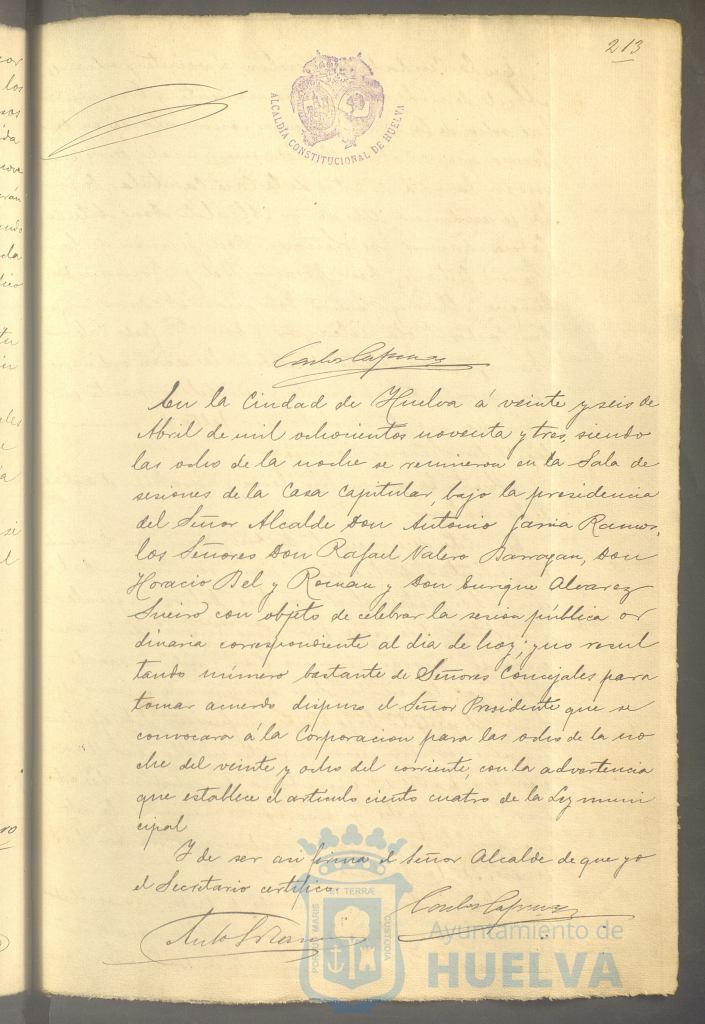 213
ALCALDÍA CONSTITUCIONAL DE HUELVA
En la Ciudad de Huelva á veinte y seis de
Abril de mil ochocientos noventa y tres, siendo
las ocho de la noche se reunieron en la Sala de
sesiones de la Casa Capitular, bajo la presidencia
del Señor Alcalde Don Antonio Garcia Ramos,
los Señores Don Rafael Valero Barragan, Don
Horacio Bel y Roman y Don Enrique Alvarez
Sueiro con objeto de celebrar la sesion pública or
dinaria correspondiente al dia de hoy; y no resul
tando número bastante de Señores Concejales para
tomar acuerdo dispuso el Señor Presidente que se
convocara á la Corporacion para las ocho de la no
che del veinte y ocho del corriente, con la advertencia
que establece el artículo ciento cuatro de la Ley muni
cipal
Y de ser asi firma el Señor Alcalde de que yo
el Secretario certifico
PORTUS MARIS ET TERRÆ CUSTODIA
Ayuntamiento de
HUELVA